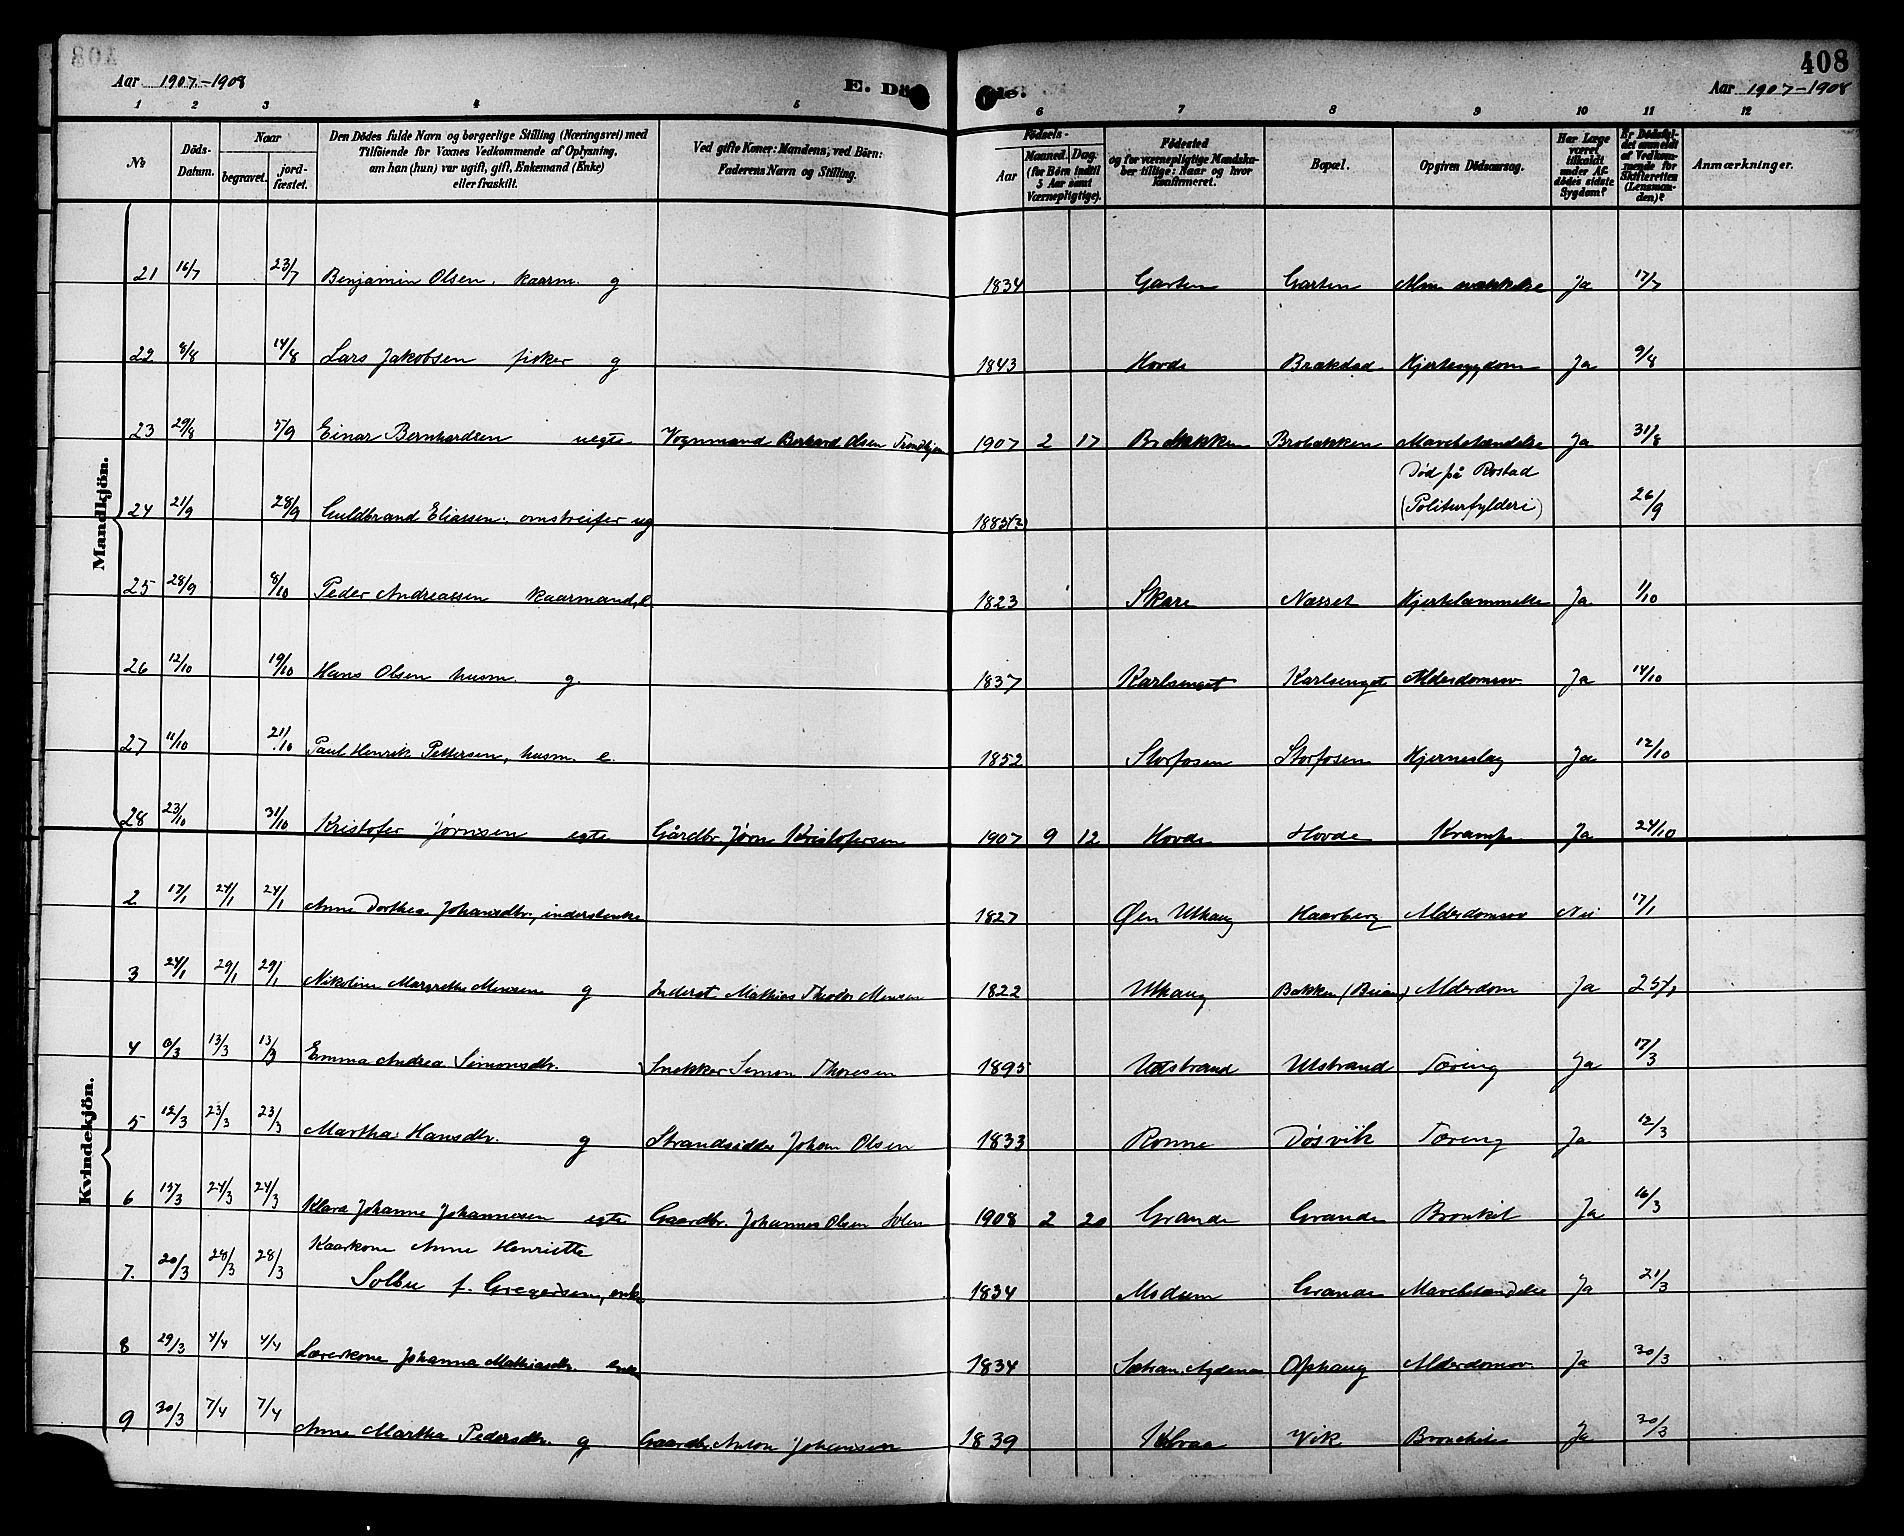 408
Aar 1907.-1908
E. Dö
de.
Aar 1907-1908
1 2 3 4 5 6 7 8 9 10 11 12
No
Döds-Datum.
Naar
begravet.
jord-fæstet.
Den Dödes fulde Navn og borgerlige Stilling (Næringsvei) med
Tilföiende for Voxnes Vedkommende af Oplysning,
om han (hun) var ugift, gift, Enkemand (Enke)
eller fraskilt.
Ved gifte Koner: Mandens; ved Börn:
Faderens Navn og Stilling.
Födsels-
Aar
Maaned. Dag.
(for Börn indtil
5 Aar samt
Værnepligtige).
Födested
og for værnepligtige Mandska-
ber tillige: Naar og hvor
konfirmeret.
Bopæl.
Opgiven Dödsaarsag.
Har Læge
været
tilkaldt
under Af-
dödes sidste
Sygdom?
Er Dödsfal-
det anmeldt
af Vedkom-
mende for
Skifteretten
(Lensman-
den)?
Anmærkninger.
Mandkjön.
21 16/7 23/7 Benjamin Olsen, kaarm. g 1834 Garten Garten Alm. svækkelse Ja 17/7
22 8/8 14/8 Lars Jakobsen fisker g 1843 Hovde Brækstad Hjertesygdom Ja 9/8
23 29/8 5/9 Einar Bernhardsen uegte Vognmand Berhard Olsen Trondhjem 1907 2 17 Brobakken Brobakken Mavebetændelse Ja 31/8
24 21/9 28/9 Guldbrand Eliassen, omstreifer ug 1883(?) Død på Rostad
(Politurfylderi) 26/9
25 28/9 8/10 Peder Andreassen kaarmand, e 1823 Skare Næsset Hjertelammelse Ja 1/10
26 12/10 19/10 Hans Olsen husm. g. 1837 Karlsenget Karlsenget Alderdomssv. Ja 14/10
27 11/10 21/10 Paul Henrik Pettersen, husm. e. 1852 Storfosen Storfosen Hjerneslag Ja 12/10
28 23/10 31/10 Kristofer Jørnsen egte Gårdbr. Jørn Kristofersen 1907 9 12 Hovde Hovde Krampe Ja 24/10
Kvindekjön.
2 17/1 24/1 24/1 Anne Dorthea Johansdtr, inderstenke 1827 Øen Uthaug Haarberg Alderdomssv Nei 17/1
3 24/1 29/1 29/1 Nikoline Margrethe Mensen g Inderst Mathias Theodor Mensen 1822 Uthaug Bakken (Beian) Alderdom Ja 25/1
4 6/3 13/3 13/3 Emma Andrea Simonsdtr. Snekker Simon Thoresen 1895 Udstrand Utstrand Tæring Ja 17/3
5 12/3 23/3 23/3 Martha Hansdtr. g Strandsidder Johan Olsen 1833 Ronne Døsvik Tæring Ja 12/3
6 15/3 24/3 24/3 Klara Johanne Johannesen egte Gaardbr. Johannes Olsen 1908 2 20 Grande Grande Bronkit Ja 16/3
7. 20/3 28/3 28/3 Kaarkone Anne Henriette
Solbu f. Gregersen, enke 1834 Modum Grande Mavebetændelse Ja 21/3
8 29/3 4/4 4/4 Lærerkone Johanna Mathiasdtr. enke 1834 Agdenes Ophaug Alderdomssv. Ja 30/3
9 30/3 7/4 7/4 Anne Martha Pedersdtr. g. Gaardbr. Anton Johansen 1839 Vik Bronchitis Ja 30/3